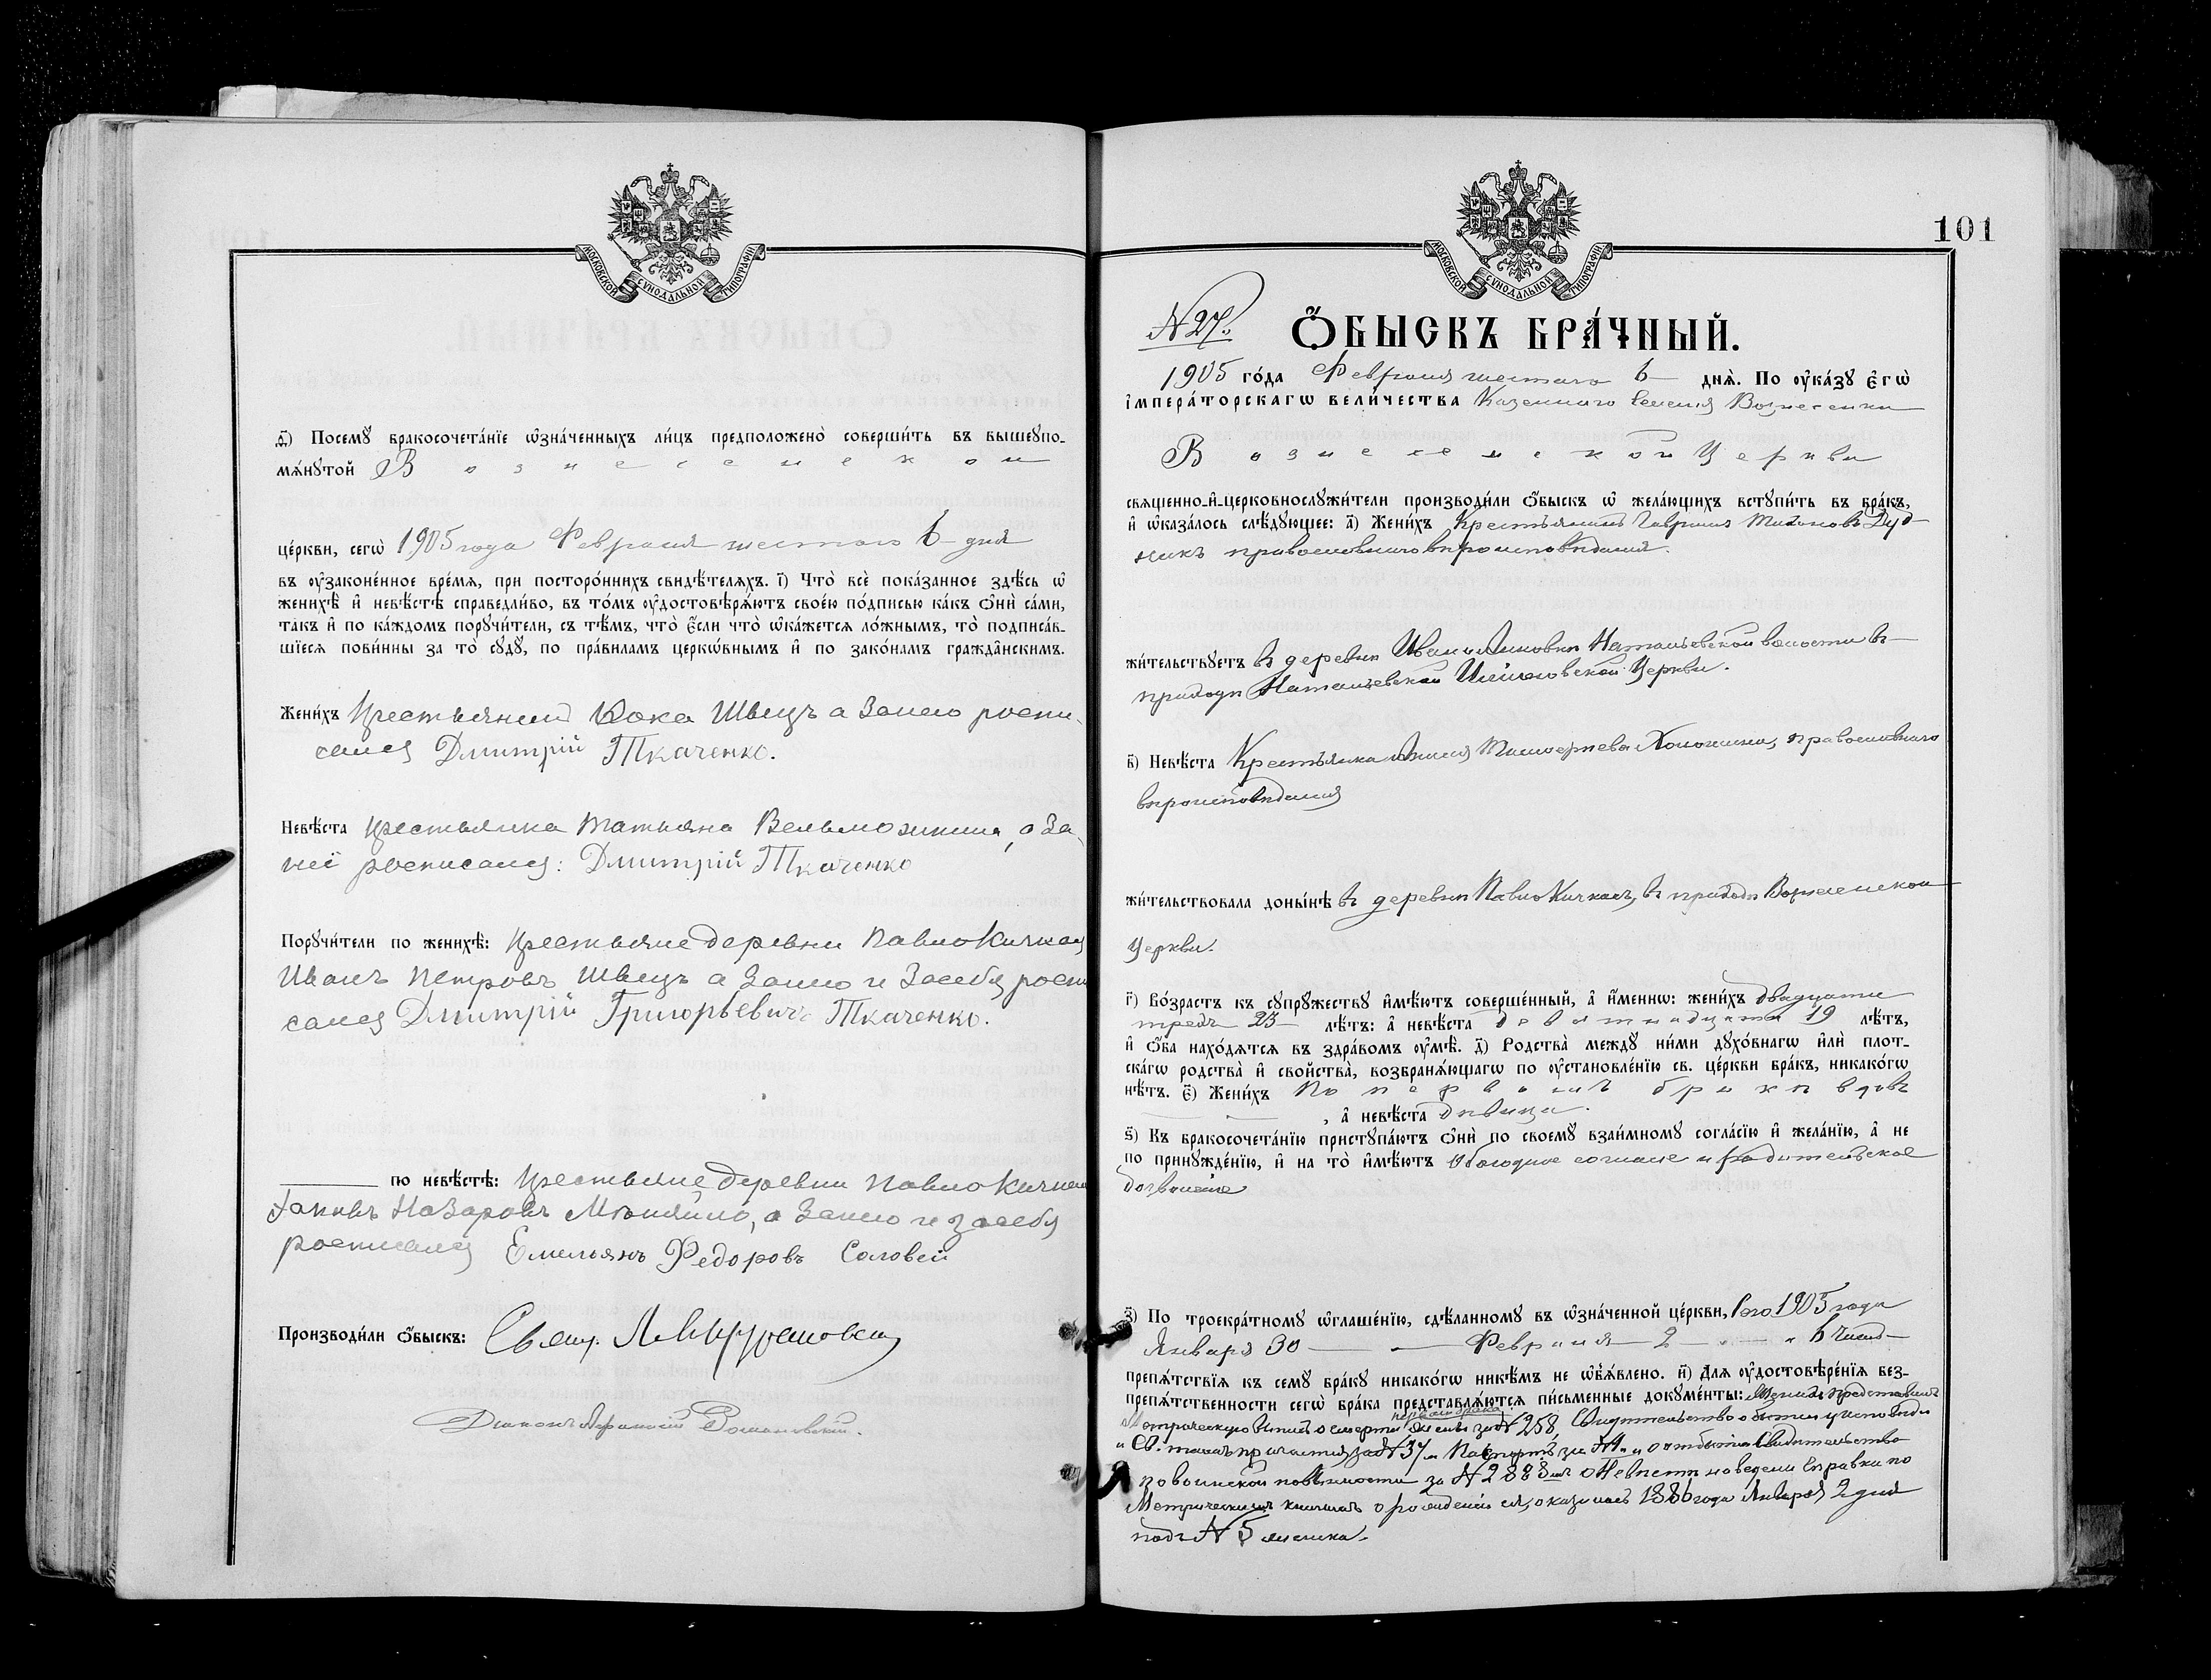 МОСКОВСКОЙ СѴНОДАЛЬНОЙ ТИПОГРАФІИ
ѳ҃) Посемꙋ бракосочета́нїе ѡ҆зна́ченныхъ ли́цъ предположено̀ соверши́ть въ вышеꙋпо-
мѧ́нꙋтой Вознесенской
це́ркви, сегѡ̀ 1905 года Февраля шестого 6 дня
въ ᲂу҆законе́нное вре́мѧ, при посторо́ннихъ свидѣ́телѧхъ. і҃) Что̀ всѐ пока́занное здѣ́сь ѡ҆
женихѣ̀ и҆ невѣ́стѣ справедли́во, въ то́мъ ᲂу҆достовѣрѧ́ютъ свое́ю по́дписью ка́къ ѻ҆нѝ са́ми,
та́къ и҆ по ка́ждомъ порꙋчи́тели, съ тѣ́мъ, что̀ є҆́сли что̀ ѡ҆ка́жетсѧ ло́жнымъ, то̀ подписа́в-
шїесѧ пови́нны за то̀ сꙋдꙋ̀, по пра́виламъ церкѡ́внымъ и҆ по зако́намъ гражда̑нскимъ.
Жени́хъ Швецъ а Занего роспи-
сался Дмитрій Ткаченко.
Невѣ́ста крестьянка Татьяна а За-
неі росписался: Дмитрій Ткаченко
Порꙋчи́тели по женихѣ̀: крестьяне деревни Павло Кичкас
Иванъ Петровъ Швецъ а Занего и Засебя роспи
сался Дмитрій Григорьевичъ Ткаченко.
по невѣ́стѣ: крестьяне деревни Павло Кичкас
Яковъ Назаровъ а Занего и засебя
росписался Емельянъ Федоровъ Соловей
Производи́ли ѻ҆́быскъ: Свящ.
Діаконъ Романовскій.
МОСКОВСКОЙ СѴНОДАЛЬНОЙ ТИПОГРАФІИ
101
N 27.
Ѻ҆́БЫСКЪ БРА́ЧНЫЙ.
1905 го́да Февраля шестого 6 днѧ̀. По ᲂу҆ка́зꙋ Є҆гѡ̀
і҆мпера́торскагѡ вели́чества Казеннаго Селенія Вознесенки
Вознесенской Церкви
свѧщенно-и҆-церковнослꙋжи́тели производи́ли ѻ҆́быскъ ѡ҆ жела́ющихъ встꙋпи́ть въ бра́къ,
и҆ ѡ҆каза́лось слѣ́дꙋющее: а҃) Жени́хъ Крестьянинъ Гавріилъ Тихоновъ Дуд-
никъ православнаго вѣроисповѣданія.
жи́тельствꙋетъ въ деревнѣ Натальевской волости въ
приходѣ Натальевской Церкви.
в҃) Невѣ́ста Крестьянка православнаго
вѣроисповѣданія
жи́тельствовала доны́нѣ въ деревнѣ Павло Кичкасъ, въ приходѣ Вознесенской
Церкви.
г҃) Во́зрастъ къ сꙋпрꙋ́жествꙋ и҆мѣ́ютъ соверше́нный, а҆ и҆́меннѡ: жени́хъ двадцати
трехъ 23 лѣ́тъ: а҆ невѣ́ста девятнадцати 19 лѣ́тъ,
и҆ ѻ҆́ба нахо́дѧтсѧ въ здра́вомъ ᲂу҆мѣ̀. д҃) Родства̀ междꙋ̀ ни́ми дꙋхо́внагѡ и҆лѝ плот-
ска́гѡ родства̀ и҆ сво́йства̀, возбранѧ́ющагѡ по ᲂу҆становле́нїю св. це́ркви бра́къ, никако́гѡ
нѣ́тъ. є҃) Жени́хъ По первомъ бракѣ вдовъ
, а҆ невѣ́ста дѣвица.
ѕ҃) Къ бракосочета́нїю пристꙋпа́ютъ ѻ҆нѝ по своемꙋ̀ взаи́мномꙋ согла́сїю и҆ жела́нїю, а҆ не
по принꙋжде́нїю, и҆ на то̀ и҆мѣ́ютъ Обоюдное согласіе и родительское
дозволеніе
з҃) По троекра́тномꙋ ѡ҆глаше́нїю, сдѣ́ланномꙋ въ ѡ҆зна́ченной це́ркви, Сего 1905 года
Января 30 Февраля 2 и 6 числа
препѧ́тствїѧ къ семꙋ̀ бра́кꙋ никако́гѡ никѣ́мъ не ѡ҆б̾ѧ́влено. и҃) Длѧ ᲂу҆достовѣре́нїѧ без-
препѧ́тственности сегѡ̀ бра́ка представлѧ́ютсѧ пи́сьменные докꙋме́нты: Женихъ представилъ
первого брака
Метрическую о смерти жены за N 258, Свидѣтельство о бытіи у исповѣди
и Св. таинъ причастія за N 37 и Паспортъ за N Свидѣтельство
по воинской повинности за N 2888 о Невѣстѣ наведены Справки по
Метрическимъ книгамъ о рожденіи ея, оказалась 1886 года Января 2 дня
подъ N 5 женска.